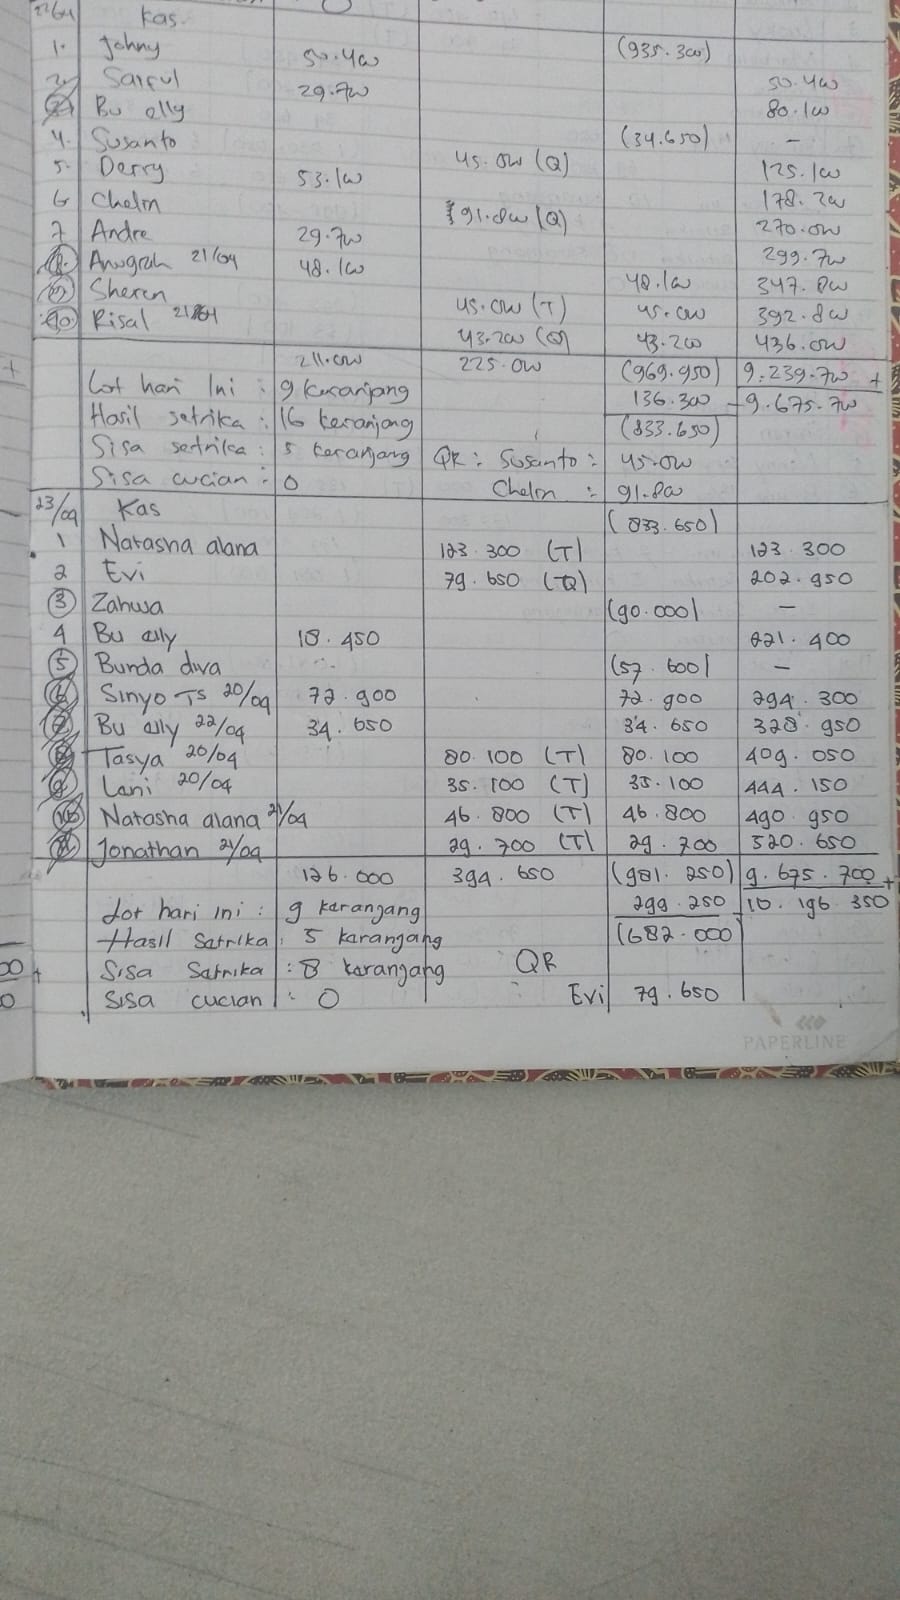 22/04 Kas (935.300)
1. Johny 50.400 50.400
2. Saiful 29.700 80.100
3 Bu elly (34.650) -
4. Susanto 45.000 (Q) 125.100
5. Derry 53.100 178.200
6 Chelin 91.800 (Q) 270.000
7 Andre 29.700 299.700
8. Anugrah 21/04 48.100 48.100 347.800
9 Sheren 45.000 (T) 45.000 392.800
10. Risal 21/04 43.200 (Q) 43.200 436.000
211.000 225.000 (969.950) 9.239.700 +
Lot hari Ini : 9 keranjang 136.300 - 9.675.700
Hasil setrika : 16 keranjang (833.650)
Sisa setrika : 5 keranjang QR : Susanto : 45.000
Sisa cucian : 0 Chelin : 91.800
23/04 Kas (833.650)
1 Natasha alana 123.300 (T) 123.300
2 Evi 79.650 (Q) 202.950
3 Zahwa (90.000) -
4 Bu elly 18.450 221.400
5 Bunda diva (57.600) -
6 Sinyo TS 20/04 72.900 72.900 294.300
7 Bu elly 22/04 34.650 34.650 328.950
8 Tasya 20/04 80.100 (T) 80.100 409.050
9 Lani 20/04 35.100 (T) 35.100 444.150
10 Natasha alana 21/04 46.800 (T) 46.800 490.950
11 Jonathan 21/04 29.700 (T) 29.700 520.650
126.000 394.650 (981.250) 9.675.700 +
Lot hari ini : 9 karangang 299.250 - 10.196.350
Hasil Satrika : 5 karangang (682.000)
Sisa Satrika : 8 karangang QR
Sisa cucian : 0 : Evi 79.650
PAPERLINE